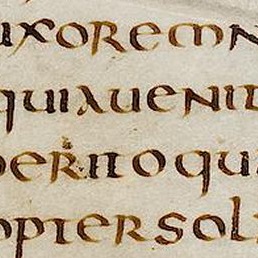 uxoremn
quiauenit
periitoqu
optersol